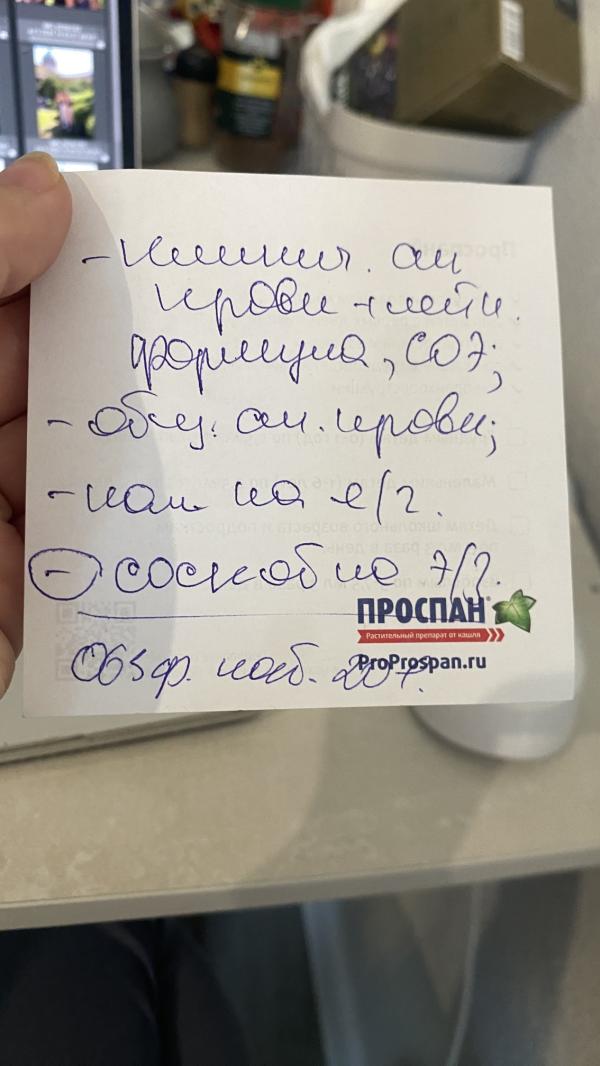 - клинич. ан
крови + лейк.
формула, СОЭ;
- общ. ан. крови;
- кал на я/г.
- соскоб на э/г.
ПРОСПАН®
Растительный препарат от кашля
ProProspan.ru
каб. 207.